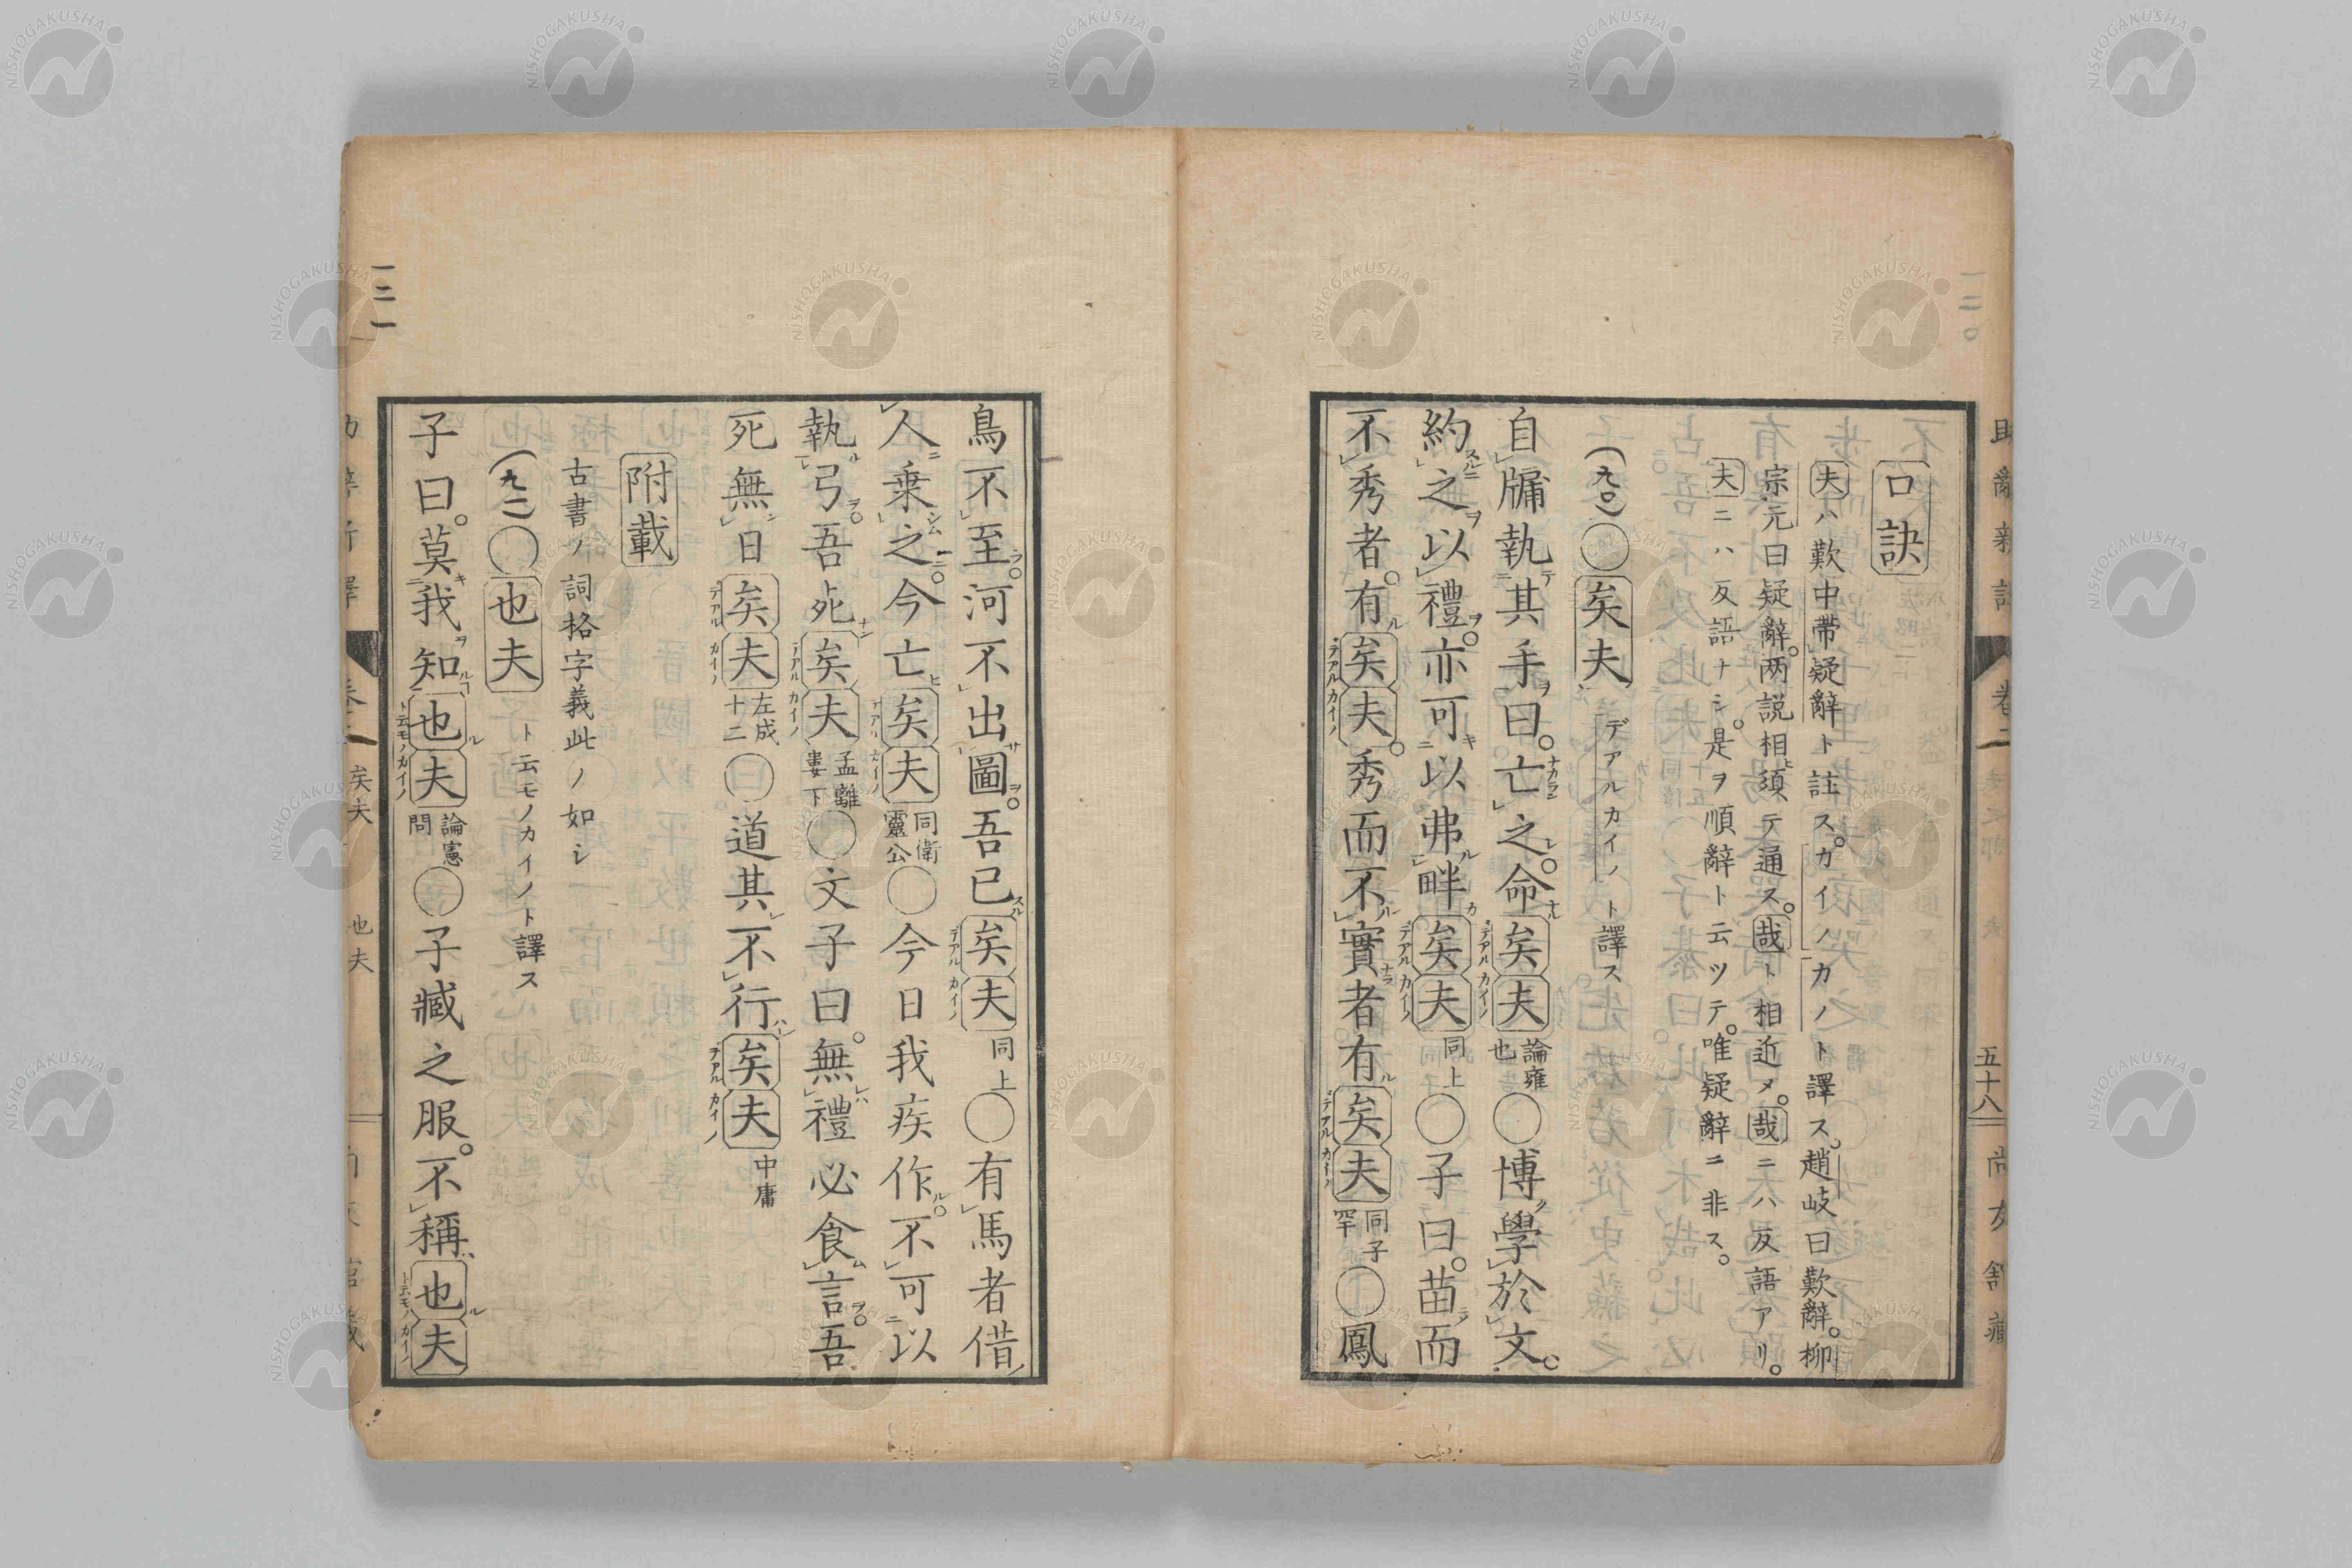 口訣
夫ハ歎中帶疑辭ト註スカイノカノト譯ス趙岐曰歎辭柳
宗元曰疑辭両説相須テ通ス哉ト相近メ哉ニハ反語アリ
夫ニハ反語ナシ是ヲ順辭ト云ツテ唯疑辭ニ非ス
(九〇)〇矣夫 デアルカイノト譯ス
自牖執其手曰亡之命矣夫 論雍也〇博學於文
約之以禮亦可以弗畔矣夫 同上〇子曰苗而
不秀者有矣夫秀而不實者有矣夫 同子罕〇鳳
五十八
鳥不至河不出圖吾已矣夫 同上〇有馬者借
人乗之今亡矣夫 同衛靈公〇今日我疾作不可以
執弓吾死矣夫 孟離婁下〇文子曰無禮必食言吾
死無日矣夫 左成十二〇道其不行矣夫 中庸
附載
古書ノ詞格字義此ノ如シ
(九一)〇也夫 ト云モノカイノト譯ス
子曰莫我知也夫 論憲問〇子臧之服不稱也夫
矣夫 也夫
一二〇
一二一
NISHOGAKUSHA